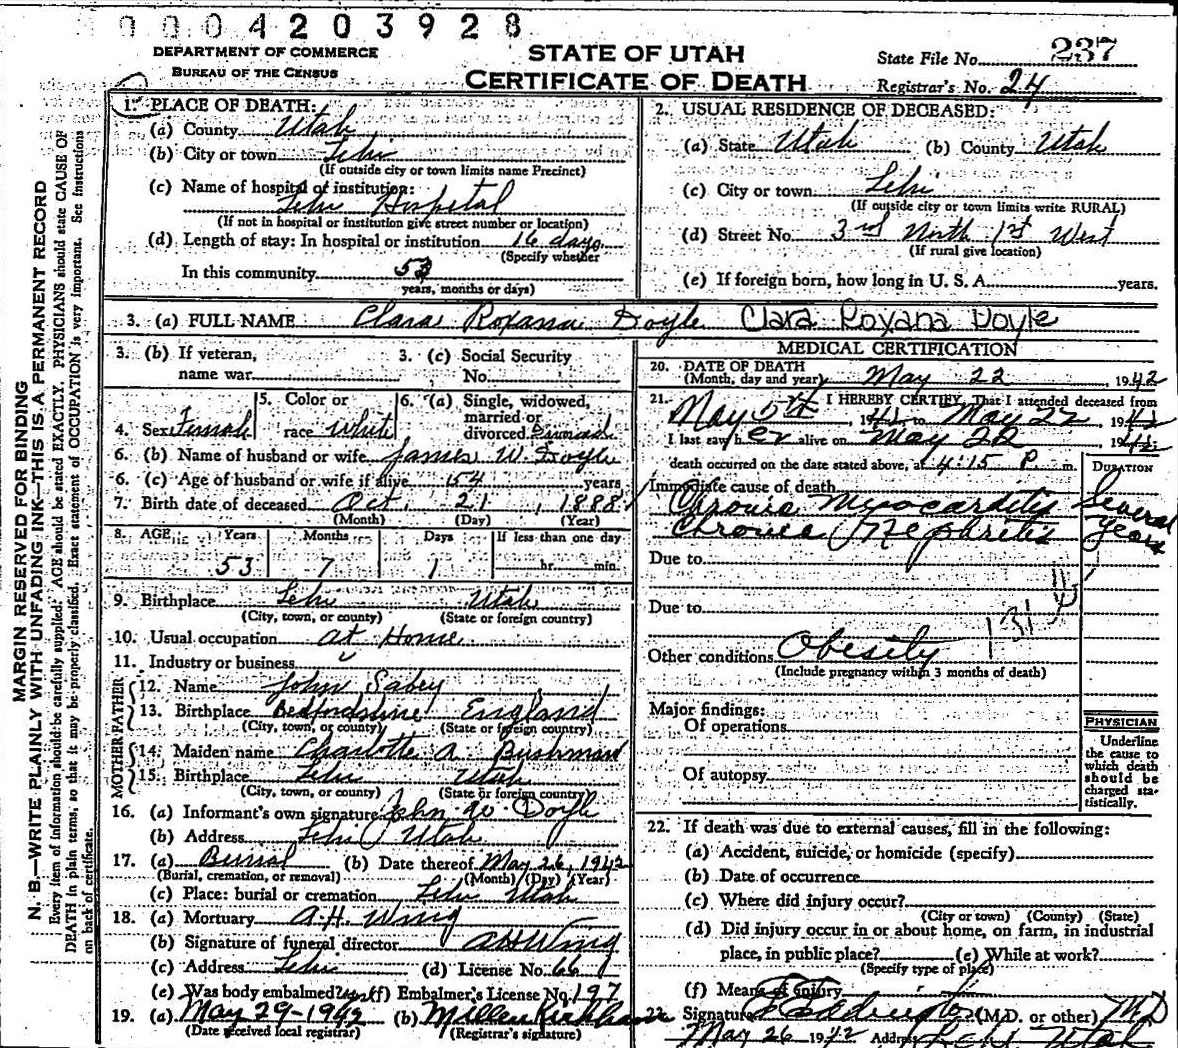 0004203928
DEPARTMENT OF COMMERCE
BUREAU OF THE CENSUS
STATE OF UTAH
CERTIFICATE OF DEATH
State File No. 237
Registrar's No. 24
MARGIN RESERVED FOR BINDING
N. B.—WRITE PLAINLY WITH UNFADING INK—THIS IS A PERMANENT RECORD
Every item of information should be carefully supplied. AGE should be stated EXACTLY. PHYSICIANS should state CAUSE OF
DEATH in plain terms, so that it may be properly classified. Exact statement of OCCUPATION is very important. See instructions
on back of certificate.
1. PLACE OF DEATH:
(a) County Utah
(b) City or town Lehi
(If outside city or town limits name Precinct)
(c) Name of hospital or institution:
Lehi Hospital
(If not in hospital or institution give street number or location)
(d) Length of stay: In hospital or institution 16 days
(Specify whether
In this community 53
years, months or days)
2. USUAL RESIDENCE OF DECEASED:
(a) State Utah (b) County Utah
(c) City or town Lehi
(If outside city or town limits write RURAL)
(d) Street No. 3rd North 1st West
(If rural give location)
(e) If foreign born, how long in U. S. A. years.
3. (a) FULL NAME Clara Roxana Doyle Clara Roxana Doyle
3. (b) If veteran, name war
3. (c) Social Security No.
4. Sex Female
5. Color or race White
6. (a) Single, widowed, married or divorced
6. (b) Name of husband or wife James W. Doyle
6. (c) Age of husband or wife if alive 54 years
7. Birth date of deceased Oct 21, 1888
(Month) (Day) (Year)
8. AGE Years Months Days If less than one day
53 7 1 hr. min.
9. Birthplace Lehi Utah
(City, town, or county) (State or foreign country)
10. Usual occupation at Home
11. Industry or business
FATHER
12. Name John Sabey
13. Birthplace Bedfordshire England
(City, town, or county) (State or foreign country)
MOTHER
14. Maiden name Charlotte A. Bushman
15. Birthplace Lehi Utah
(City, town, or county) (State or foreign country)
16. (a) Informant's own signature John W Doyle
(b) Address Lehi Utah
17. (a) Burial (b) Date thereof May 26, 1942
(Burial, cremation, or removal) (Month) (Day) (Year)
(c) Place: burial or cremation Lehi Utah
18. (a) Mortuary A.H. Wing
(b) Signature of funeral director AH Wing
(c) Address Lehi (d) License No. 66
(e) Was body embalmed? yes (f) Embalmer's License No. 197
19. (a) May 29-1942 (b) Kirkham
(Date received local registrar) (Registrar's signature)
MEDICAL CERTIFICATION
20. DATE OF DEATH
(Month, day and year) May 22, 1942
21. I HEREBY CERTIFY, That I attended deceased from
May 5th, to May 22, 1942
I last saw her alive on May 22, 1942
death occurred on the date stated above, at 4:15 P m.
DURATION
Immediate cause of death
Chronic Myocarditis Several
Chronic Nephritis Years
Due to
Due to
131
Other conditions Obesity
(Include pregnancy within 3 months of death)
Major findings:
Of operations
Of autopsy
PHYSICIAN
Underline
the cause to
which death
should be
charged sta-
tistically.
22. If death was due to external causes, fill in the following:
(a) Accident, suicide, or homicide (specify)
(b) Date of occurrence
(c) Where did injury occur?
(City or town) (County) (State)
(d) Did injury occur in or about home, on farm, in industrial
place, in public place? (e) While at work?
(Specify type of place)
(f) Means of injury
Signature Eddington (M.D. or other) MD
May 26 1942 Address Lehi Utah